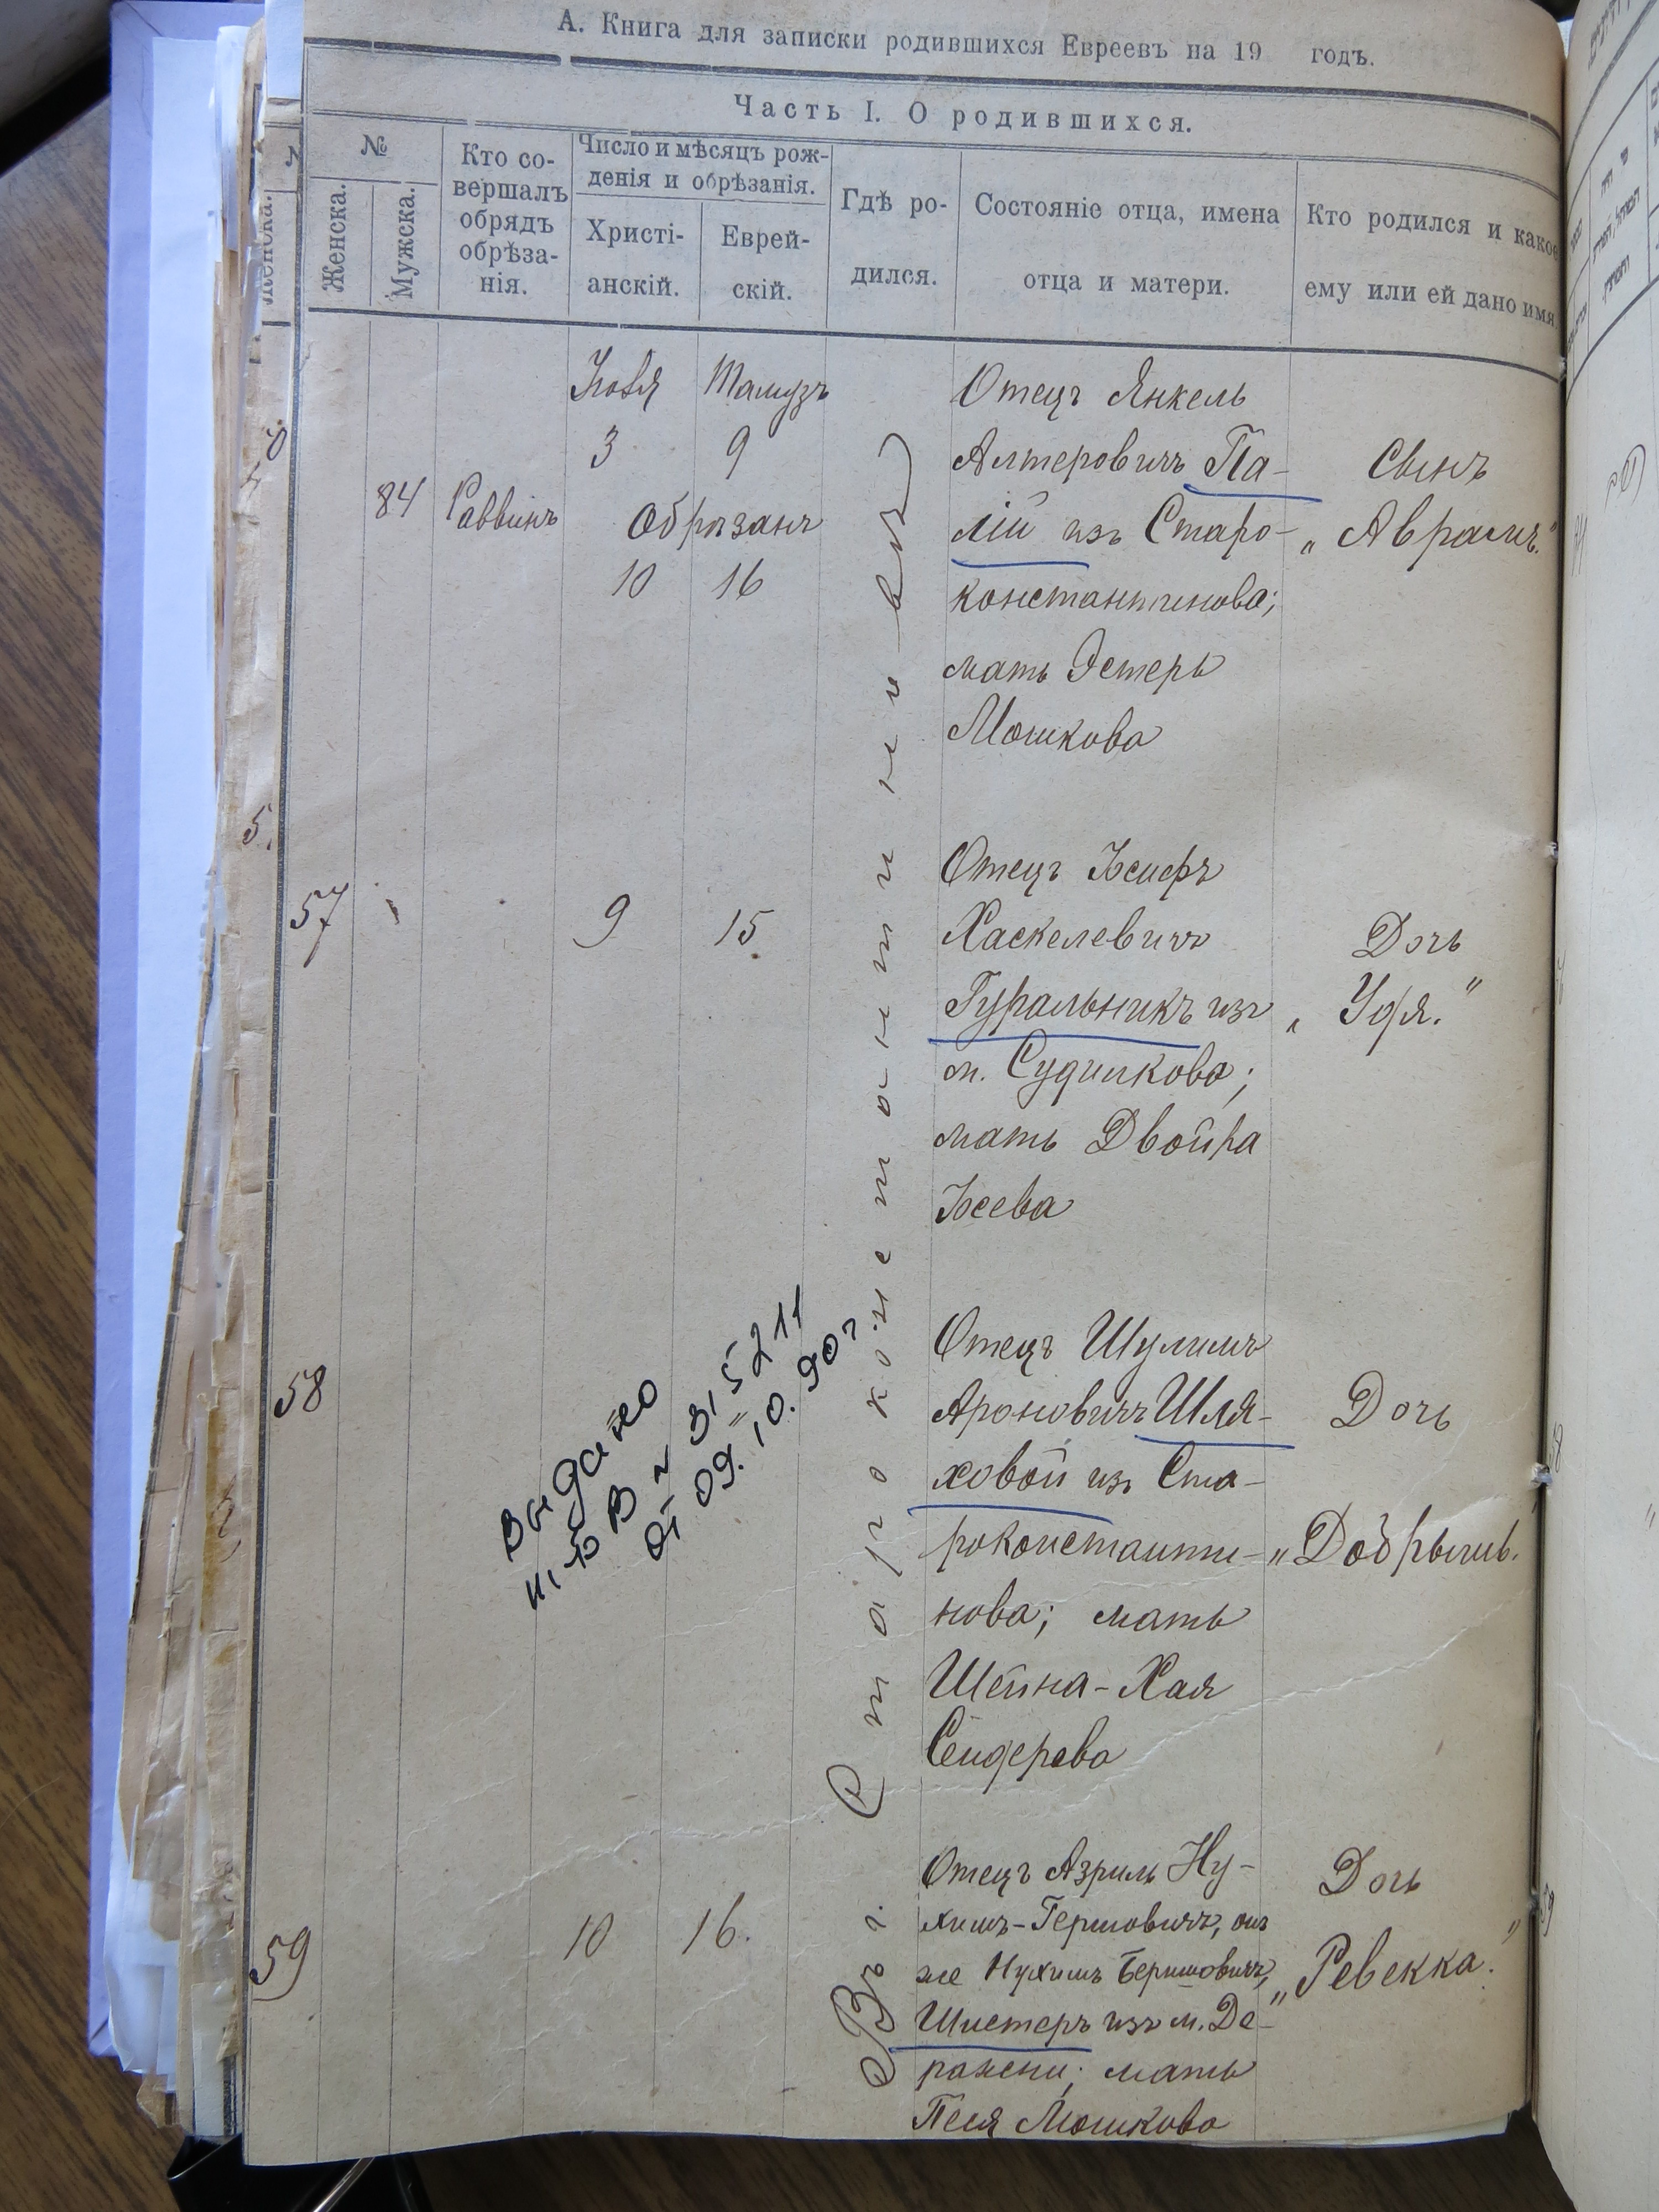 А. Книга для записки родившихся Евреевъ на 19 годъ.
Часть I. О родившихся.
№
Женска.
Мужска.
Кто со-
вершалъ
обрядъ
обрѣза-
нія.
Число и мѣсяцъ рож-
денія и обрѣзанія.
Христі-
анскій.
Еврей-
скій.
Гдѣ ро-
дился.
Состояніе отца, имена
отца и матери.
Кто родился и какое
ему или ей дано имя
Въ г. Староконстантиновѣ
84
Раввинъ
Іюля Тамузъ
3 9
Обрѣзанъ
10 16
Отецъ Янкель
Алтеровичъ Па-
лій изъ Старо-
константинова;
мать Эстеръ
Мошкова
Сынъ
„Аврамъ."
57
9 15
Отецъ Іосифъ
Хаскелевичъ
Гуральникъ изъ
м. Судилкова;
мать Двойра
Іосева
Дочь
„Удя."
58
Выдано
н-ю В № 315211
от 09.10.90 г.
Отецъ Шулимъ
Ароновичъ Шля-
ховой изъ Ста-
роконстанти-
нова; мать
Шейна-Хая
Сендерова
Дочь
„Добрышъ."
59
10 16.
Отецъ Азриль Ну-
химъ-Гершовичъ, онъ
же Нухимъ Беришовичъ,
Шистеръ изъ м. Де-
ражени; мать
Песя Мошкова
Дочь
„Ревекка."